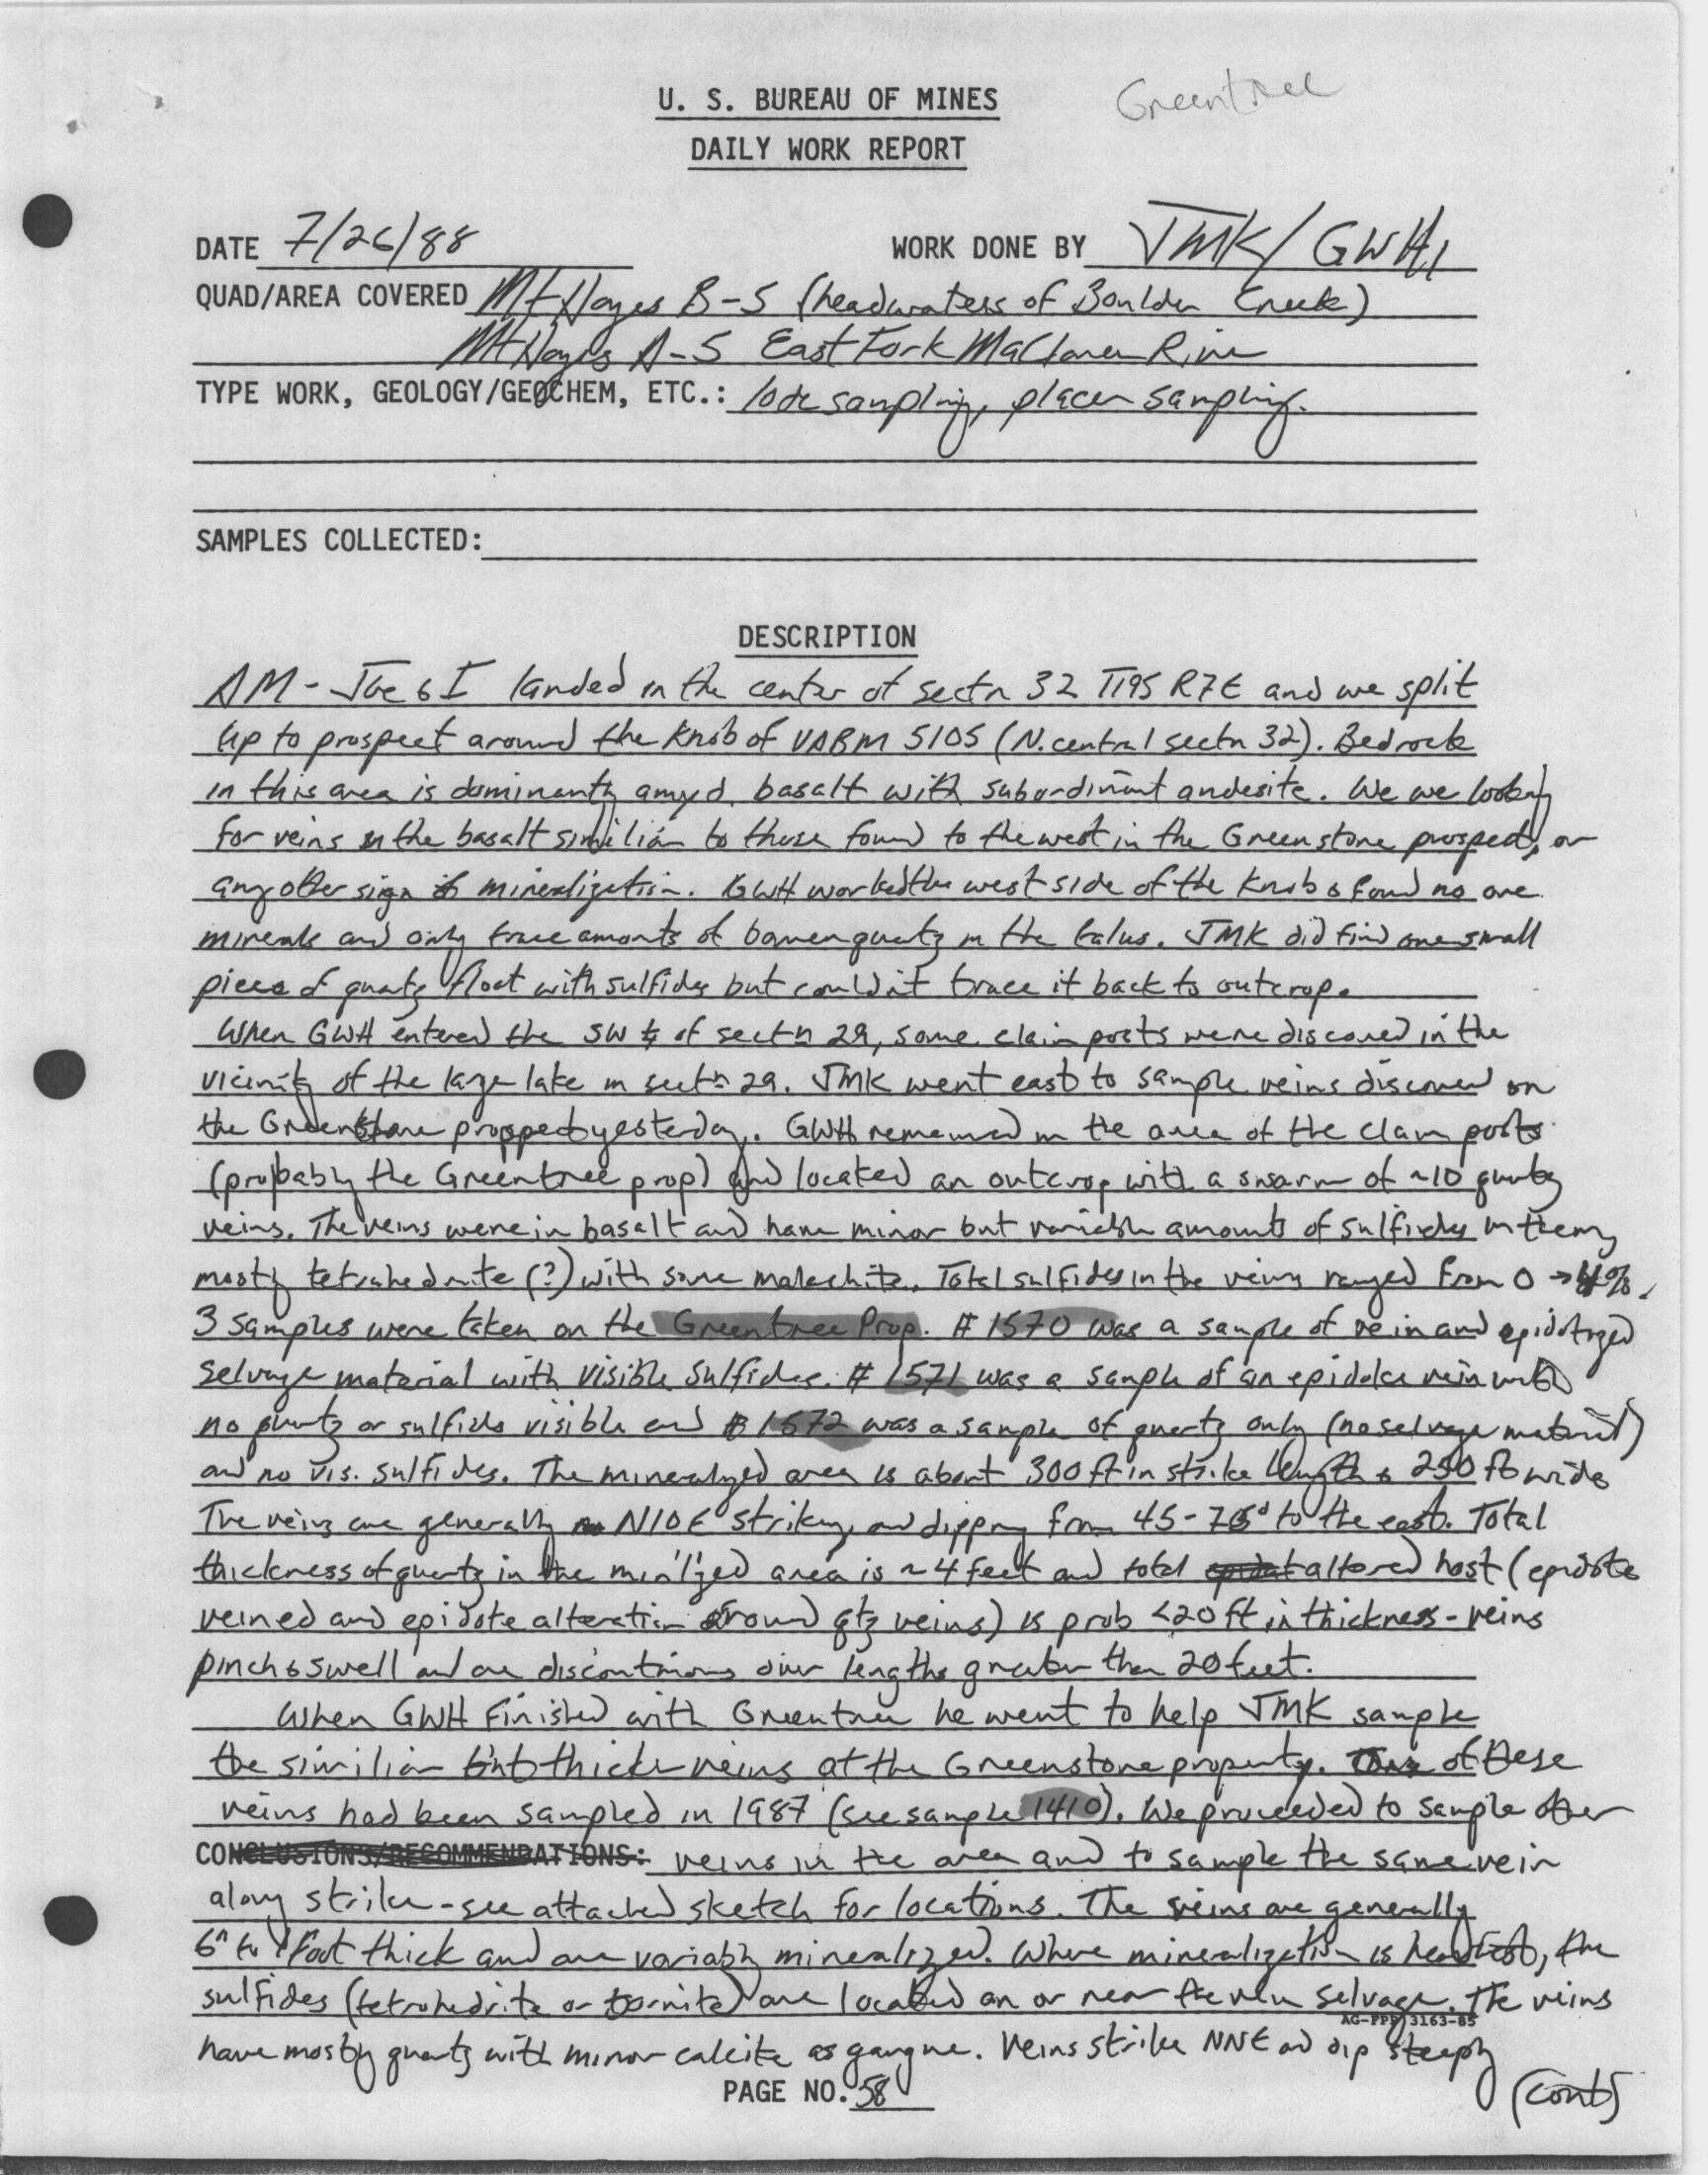 Greentree
U. S. BUREAU OF MINES
DAILY WORK REPORT
DATE 7/26/88 WORK DONE BY JMK/GWH
QUAD/AREA COVERED Mt Hayes B-5 (headwaters of Boulder Creek)
Mt Hayes A-5 East Fork Maclaren River
TYPE WORK, GEOLOGY/GEOCHEM, ETC.: lode sampling, placer sampling.
SAMPLES COLLECTED:
DESCRIPTION
AM - Joe & I landed in the center of sectn 32 T19S R7E and we split
up to prospect around the knob of VABM 5105 (N. central sectn 32). Bedrock
in this area is dominantly amyd. basalt with subordinant andesite. We we looking
for veins in the basalt similiar to those found to the west in the Greenstone prospect, or
any other sign of mineralization. GWH worked the west side of the knob & found no ore
minerals and only trace amonts of barren quartz in the talus. JMK did find one small
piece of quartz float with sulfides but couldn't trace it back to outcrop.
When GWH entered the SW ¼ of sectn 29, some claim posts were discovered in the
vicinity of the large lake in sectn 29. JMK went east to sample veins discovered on
the Greenstone property yesterday. GWH remained in the area of the claim posts
(probably the Greentree prop) and located an outcrop with a swarm of ~10 quartz
veins. The veins were in basalt and have minor but variable amounts of sulfides in them,
mostly tetrahedrite (?) with some malachite. Total sulfides in the veins ranged from 0 → 4%.
3 samples were taken on the Greentree Prop. # 1570 was a sample of vein and epidotized
selvage material with visible sulfides. # 1571 was a sample of an epidote vein with
no quartz or sulfides visible and # 1572 was a sample of quartz only (no selvage material)
and no vis. sulfides. The mineralized area is about 300 ft in strike length & 250 ft wide
The veins are generally N10E° striking, and dipping from 45-75° to the east. Total
thickness of quartz in the min'lized area is ~4 feet and total altered host (epidote
veined and epidote alteration around qtz veins) is prob <20 ft in thickness - veins
pinch & swell and are discontinous over lengths greater than 20 feet.
When GWH finished with Greentree he went to help JMK sample
the similiar but thicker veins at the Greenstone property. of these
veins had been sampled in 1987 (see sample 1410). We proceeded to sample other
CONCLUSIONS/RECOMMENDATIONS: veins in the area and to sample the same vein
along strike - see attached sketch for locations. The veins are generally
6" to 1 foot thick and are variably mineralized. Where mineralization is heaviest, the
sulfides (tetrahedrite or bornite) are located on or near the vein selvage. The veins
AG-FPP) 3163-85
have mostly quartz with minor calcite as gangue. Veins strike NNE and dip steeply
PAGE NO. 58 (cont)